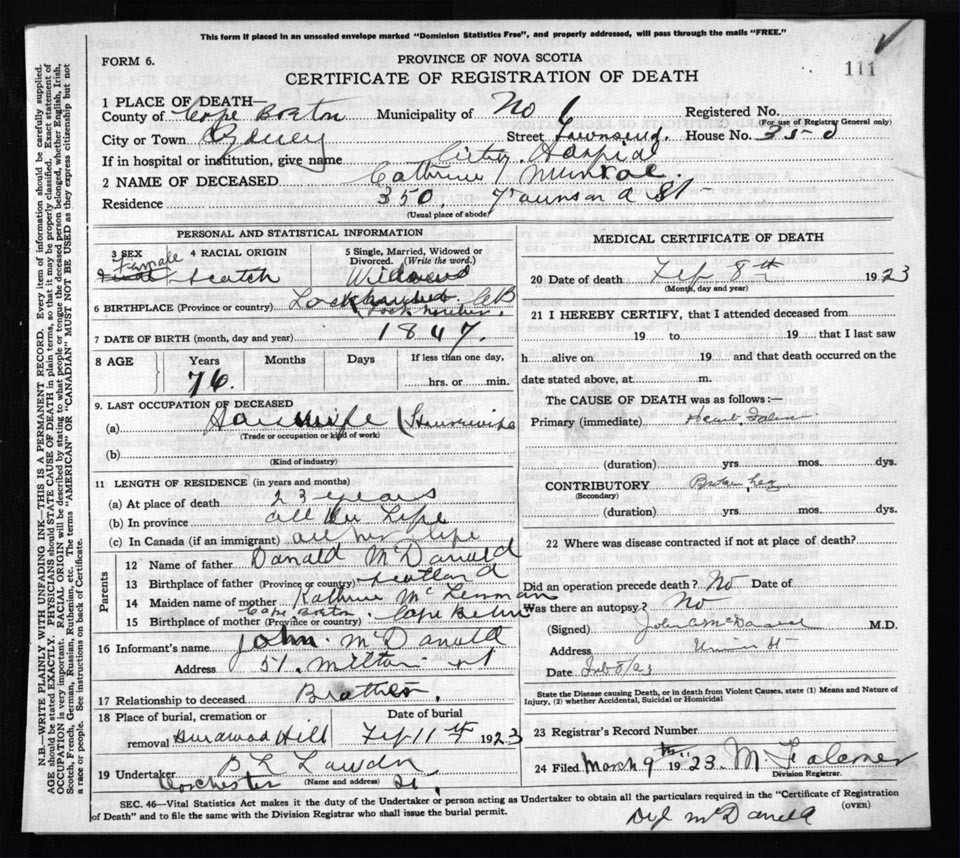 This form if placed in an unsealed envelope marked "Dominion Statistics Free", and properly addressed, will pass through the mails "FREE."
FORM 6.
PROVINCE OF NOVA SCOTIA
111
CERTIFICATE OF REGISTRATION OF DEATH
1 PLACE OF DEATH—
County of Cape Breton Municipality of No 6 Registered No.
(For use of Registrar General only)
City or Town Sydney Street Townsend. House No. 350
If in hospital or institution, give name City Hospial
2 NAME OF DECEASED Cathrine Munroe.
Residence 350, St
(Usual place of abode)
PERSONAL AND STATISTICAL INFORMATION
3 SEX Female 4 RACIAL ORIGIN Scotch 5 Single, Married, Widowed or Divorced. (Write the word.)
6 BIRTHPLACE (Province or country) CB
7 DATE OF BIRTH (month, day and year) 1847.
8 AGE Years 76. Months Days If less than one day, hrs. or min.
9. LAST OCCUPATION OF DECEASED
(a) Housewife (Housewife
(Trade or occupation or kind of work)
(b)
(Kind of industry)
11 LENGTH OF RESIDENCE (in years and months)
(a) At place of death 23 years
(b) In province all her Life
(c) In Canada (if an immigrant) all her life
Parents
12 Name of father Danald McDanald
13 Birthplace of father (Province or country) Scotland
14 Maiden name of mother Kathrine
15 Birthplace of mother (Province or country) Cape Breton. Cape Breton
16 Informant's name John McDanald
Address 51.
17 Relationship to deceased Brother.
18 Place of burial, cremation or removal Hill Date of burial Feb 11th 1923
19 Undertaker
(Name and address) Dorchester St.
MEDICAL CERTIFICATE OF DEATH
20 Date of death Feb 8th 1923
(Month, day and year)
21 I HEREBY CERTIFY, that I attended deceased from
19 to 19 that I last saw
h alive on 19 and that death occurred on the
date stated above, at m.
The CAUSE OF DEATH was as follows:—
Primary (immediate) Heart
(duration) yrs. mos. dys.
CONTRIBUTORY Broken Leg
(Secondary)
(duration) yrs. mos. dys.
22 Where was disease contracted if not at place of death?
Did an operation precede death? No Date of
Was there an autopsy? No
(Signed) M.D.
Address St
Date Feb 8/23
State the Disease causing Death, or in death from Violent Causes, state (1) Means and Nature of Injury, (2) whether Accidental, Suicidal or Homicidal
23 Registrar's Record Number
24 Filed March 9th 1923. M. Falconer
Division Registrar.
SEC. 46—Vital Statistics Act makes it the duty of the Undertaker or person acting as Undertaker to obtain all the particulars required in the "Certificate of Registration of Death" and to file the same with the Division Registrar who shall issue the burial permit.
(OVER)
McDanald
N.B.—WRITE PLAINLY WITH UNFADING INK—THIS IS A PERMANENT RECORD. Every item of information should be carefully supplied.
AGE should be stated EXACTLY. PHYSICIANS should STATE CAUSE OF DEATH in plain terms, so that it may be properly classified. Exact statement of
OCCUPATION is very important. RACIAL ORIGIN will be described by stating to what people or tongue the deceased person belonged, whether English, Irish,
Scotch, French, German, Russian, Ruthenian, etc. The terms "AMERICAN" OR "CANADIAN" MUST NOT BE USED as they express citizenship but not
a race or people. See instructions on back of Certificate.